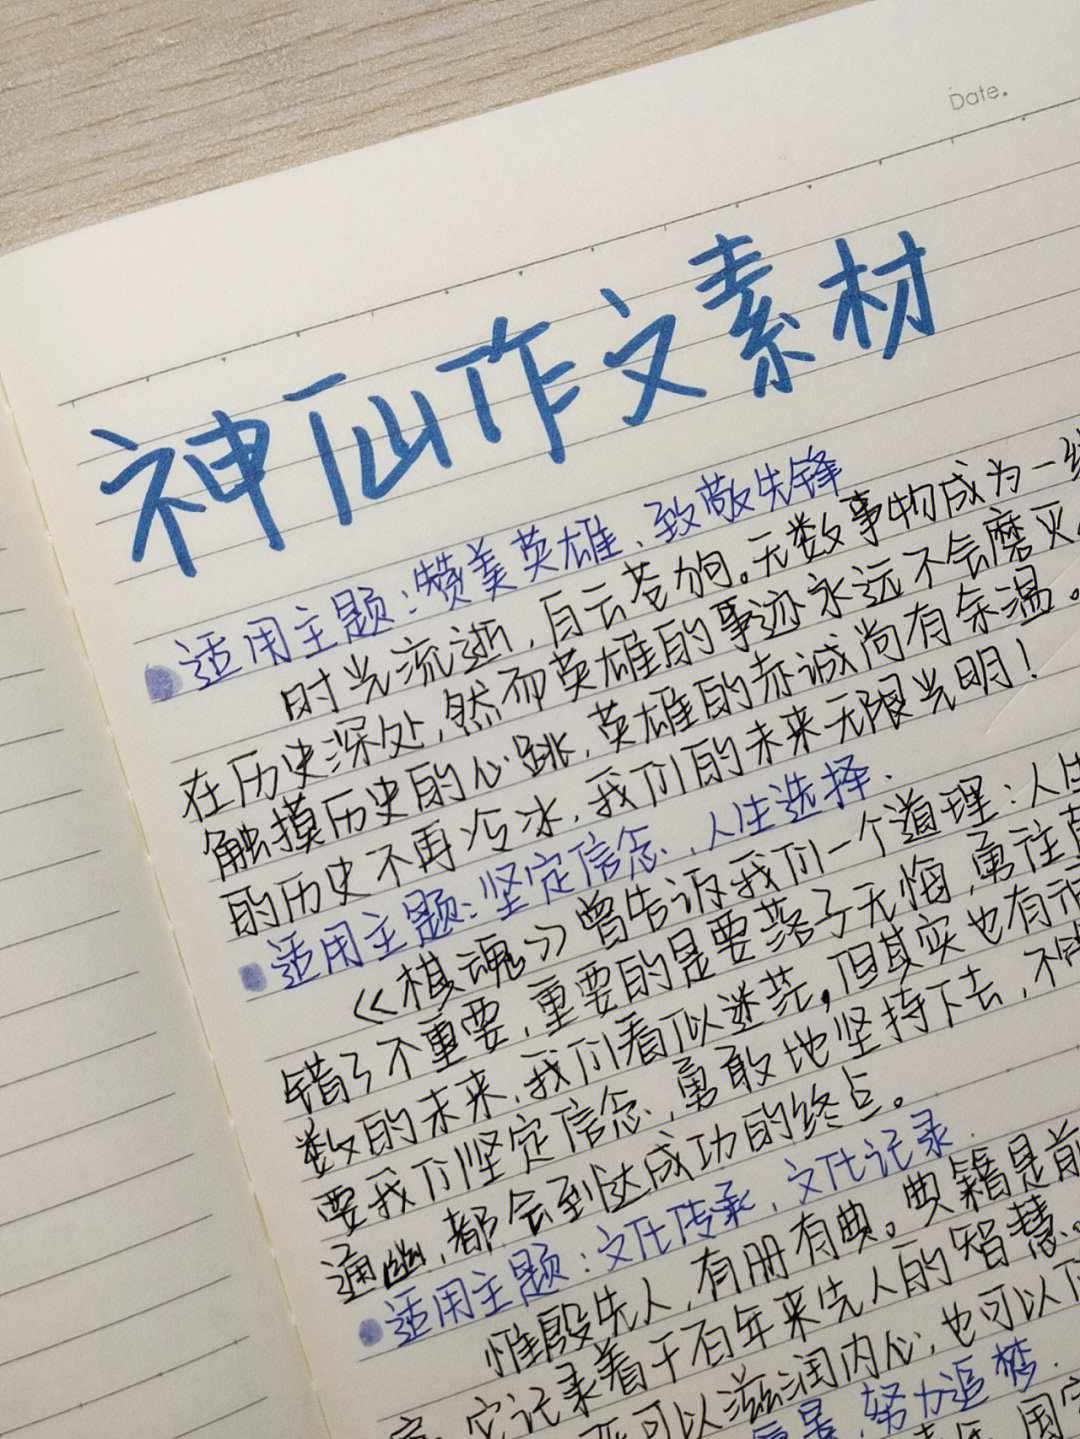 Date.
神仙作文素材
适用主题：赞美英雄、致敬先锋
时光流逝，白云苍狗。无数事物成为一
在历史深处，然而英雄的事迹永远不会磨灭
触摸历史的心跳，英雄的赤诚尚有余温。
的历史不再冷冰，我们的未来无限光明！
适用主题：坚定信念、人生选择.
《棋魂》曾告诉我们一个道理：人生
错了不重要，重要的是要落子无悔，勇往
数的未来，我们看似迷茫，但其实也有
要我们坚定信念，勇敢地坚持下去，不
通幽，都会到达成功的终点。
适用主题：文化传承，文化记录.
惟殷先人，有册有典。典籍是前
它记录着千百年来先人的智慧。
可以滋润内心，也可以
努力追梦.